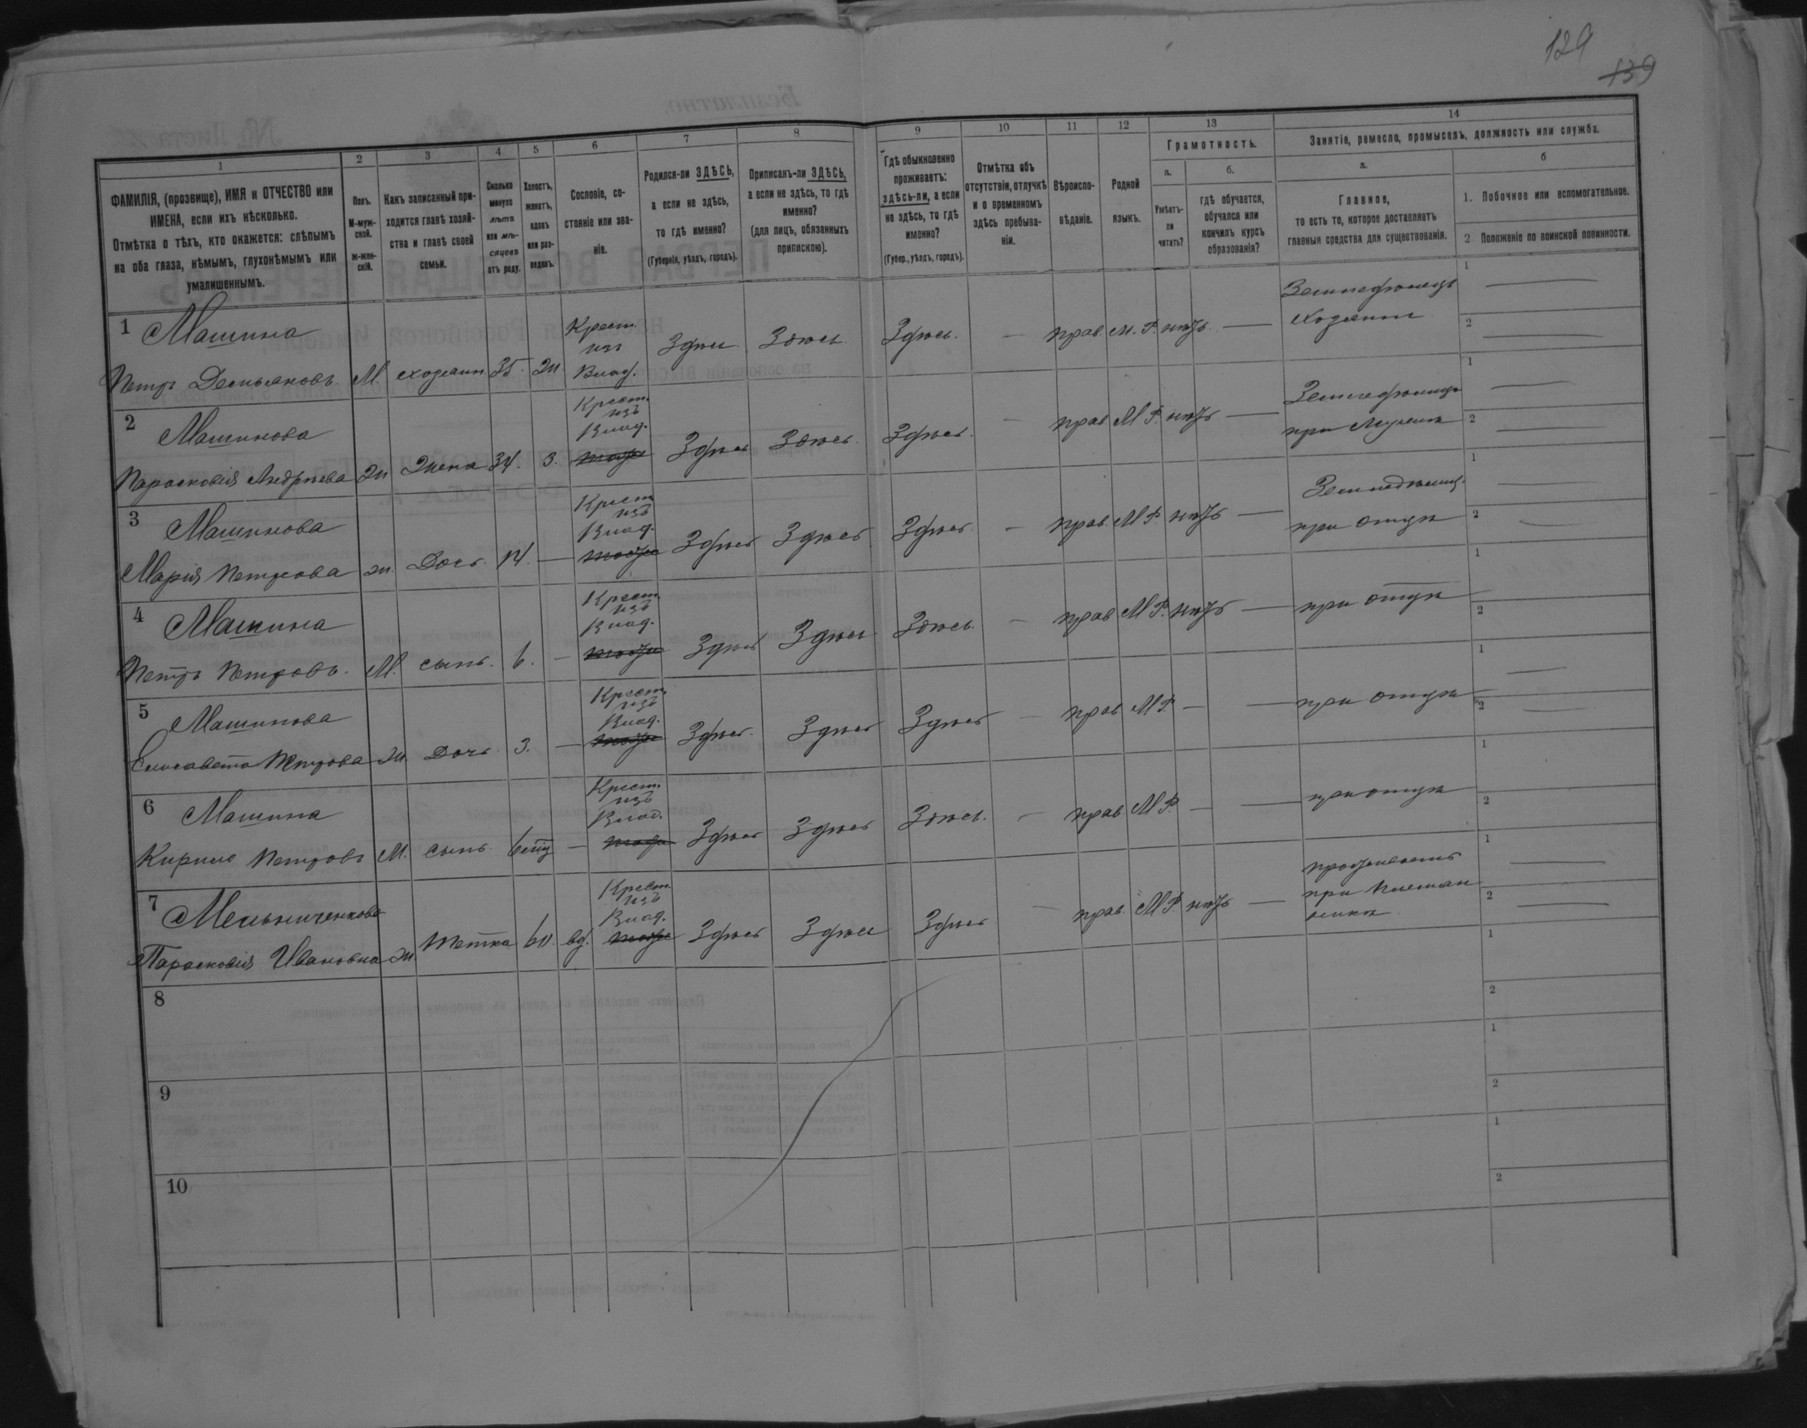 129
139
1 2 3 4 5 6 7 8 9 10 11 12 13 14
ФАМИЛІЯ, (прозвище), ИМЯ и ОТЧЕСТВО или ИМЕНА, если ихъ нѣсколько.
Отмѣтка о тѣхъ, кто окажется: слѣпымъ на оба глаза, нѣмымъ, глухонѣмымъ или умалишеннымъ.
Полъ. М-мужской. ж-женскій.
Какъ записанный приходится главѣ хозяйства и главѣ своей семьи.
Сколько минуло лѣтъ или мѣсяцевъ отъ роду.
Холостъ, женатъ, вдовъ или разведенъ.
Сословіе, состояніе или званіе.
Родился-ли ЗДѢСЬ, а если не здѣсь, то гдѣ именно?
(Губернія, уѣздъ, городъ).
Приписанъ-ли ЗДѢСЬ, а если не здѣсь, то гдѣ именно?
(для лицъ, обязанныхъ припискою).
Гдѣ обыкновенно проживаетъ: здѣсь-ли, а если не здѣсь, то гдѣ именно?
(Губер., уѣздъ, городъ).
Отмѣтка объ отсутствіи, отлучкѣ и о временномъ здѣсь пребываніи.
Вѣроисповѣданіе.
Родной языкъ.
Грамотность.
а.
Умѣетъ-ли читать?
б.
гдѣ обучается, обучался или кончилъ курсъ образованія?
Занятіе, ремесло, промыселъ, должность или служба.
а.
Главное,
то есть то, которое доставляетъ главныя средства для существованія.
б
1. Побочное или вспомогательное.
2 Положеніе по воинской повинности.
1 Машина
Петръ Демьяновъ М. хозяин 35 Ж Крест. из Влад. Здѣсь Здѣсь Здѣсь. — прав. М. Р. нѣтъ — Земледѣлецъ хозяинъ 1 — 2 —
2 Машинова
Парасковія Андрѣева Ж Жена 34. З. Крест. изъ Влад. Здѣсь Здѣсь Здѣсь. — прав М Р. нѣтъ — Земледѣлица при Мужѣ 1 — 2 —
3 Машинова
Марія Петрова ж Дочь. 14. — Крест изъ Влад. Здѣсь Здѣсь Здѣсь — прав МР. нѣтъ — при отцѣ 1 — 2 —
4 Машина
Петръ Петровъ. М. сынъ. 6. — Крест. изъ Влад. Здѣсь Здѣсь Здѣсь. — прав МР. нѣтъ — при отцѣ 1 2
5 Машинова
Елисавета Петрова ж Дочь 3. — Крест. изъ Влад. Здѣсь. Здѣсь Здѣсь — прав МР — — при отцѣ 1 — 2 —
6 Машина
Кирило Петровъ М. сынъ — Крест. изъ Влад. Здѣсь Здѣсь Здѣсь. — прав МР — — при отцѣ 1 2
7 Мельниченкова
Парасковія Ивановна ж Тетка 60 вд. Крест. изъ Влад. Здѣсь Здѣсь Здѣсь — прав. МР нѣтъ — при 1 — 2 —
8 1 2
9 1 2
10 1 2